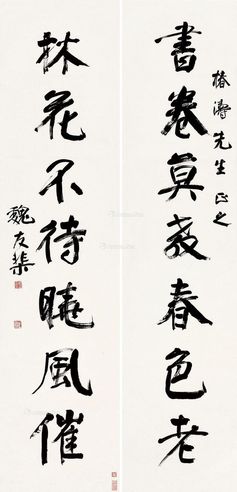 書卷莫教春色老
椿濤先生正之
林花不待曉風催
魏友棐